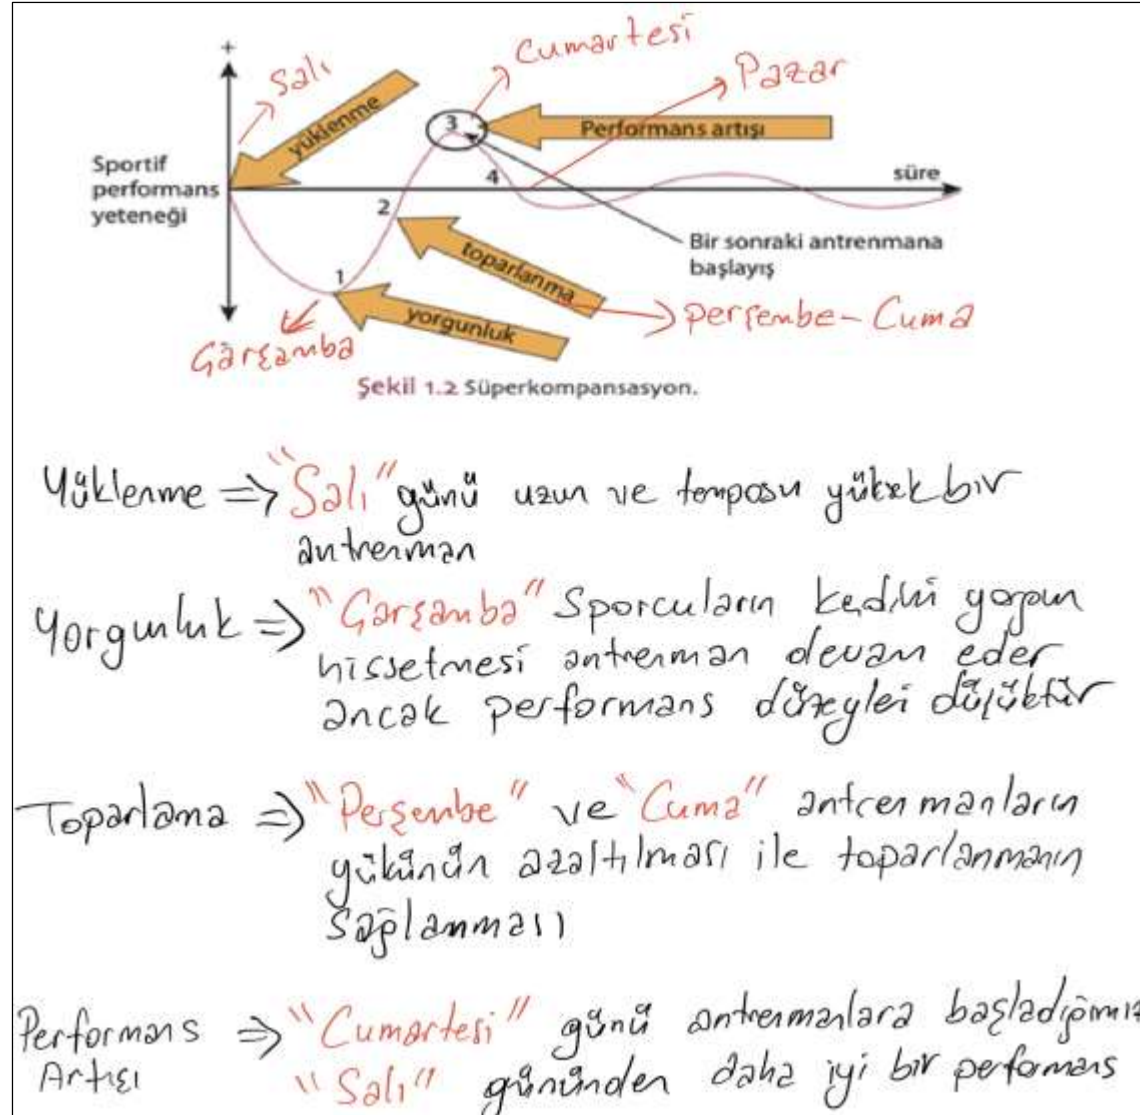 +
Salı
Cumartesi
Pazar
yüklenme
3
Performans artışı
Sportif
performans
yeteneği
4
süre
2
Bir sonraki antrenmana
başlayış
toparlanma
1
perşembe - Cuma
yorgunluk
Çarşamba
Şekil 1.2 Süperkompansasyon.
Yüklenme => "Salı" günü uzun ve temposu yüksek bir
antrenman
Yorgunluk => "Çarşamba" Sporcuların kedini yorgun
hissetmesi antrenman devam eder
ancak performans düzeyleri düşüktür
Toparlama => "Perşembe" ve "Cuma" antrenmanların
yükünün azaltılması ile toparlanmanın
sağlanması
Performans => "Cumartesi" günü antrenmanlara başladığımız
Artışı "Salı" gününden daha iyi bir performans